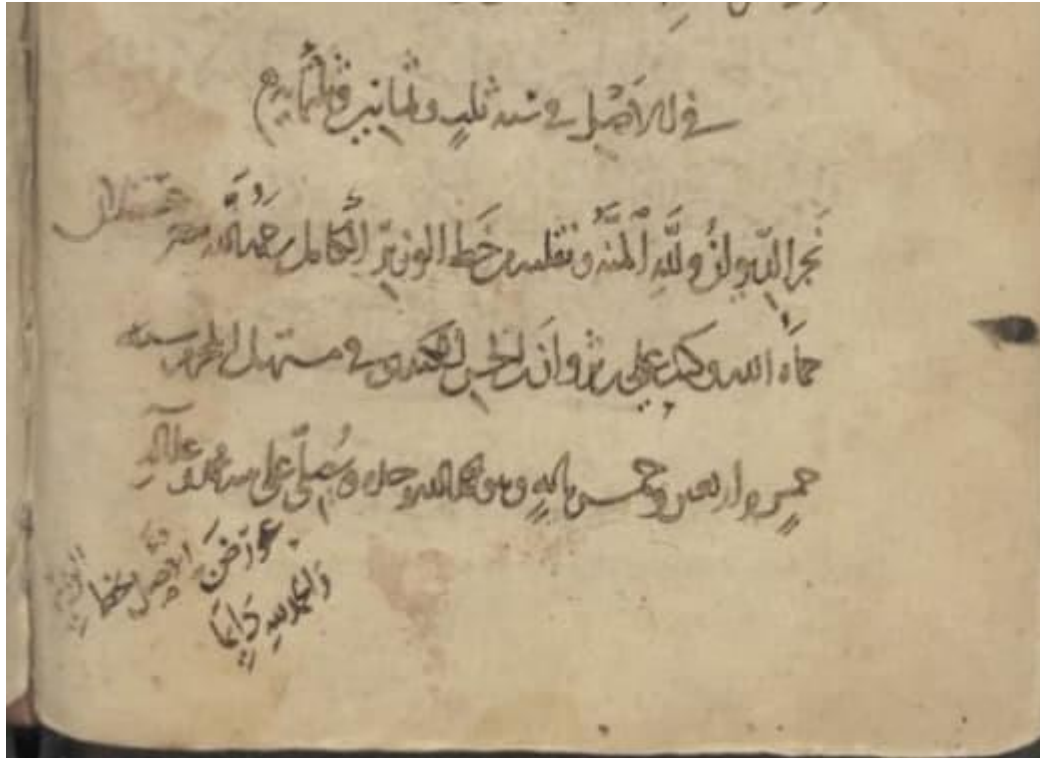 في الاصل في سنة ثلث وثمانين وثلثمائة
نجز الديوان ولله المنة ونقلته من خط الوزير الكامل
حماه الله وكتب علي بن ثروان بن الحسن الكندي في مستهل المحرم سنة
خمس واربعين وخمس مائة وهو يحمد الله وحده ويصلي على محمد وعلى آله
عورض الاصل بخط
والحمد لله دايما